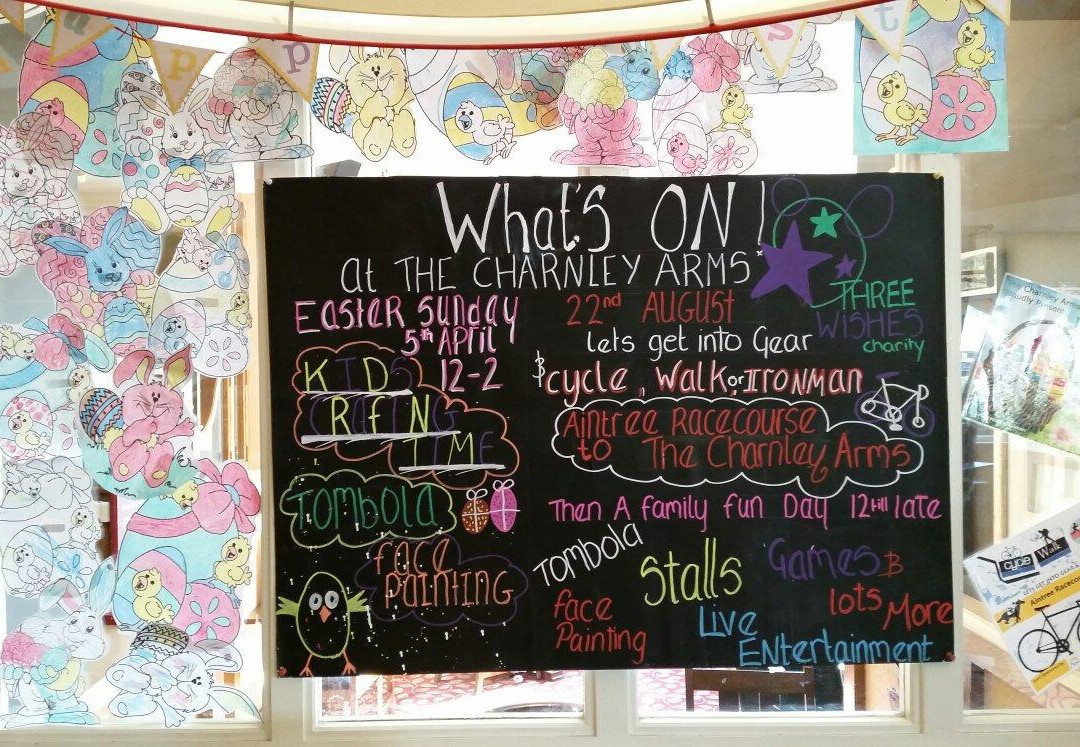 p p s t
What's ON !
at THE CHARNLEY ARMS
THREE
WISHES
charity
Easter Sunday
5th APRIL
12-2
KIDS
CRAfTING
TIME
TOMBOLA
face
PAiNTiNG
22nd AUGUSt
lets get into Gear
& cycle, Walk or IRONMAN
Aintree Racecourse
to The Charnley Arms
Then A family fun Day 12till late
TOMBOLA
Stalls
Games &
lots More
face
Painting
Live
ENtertainment
Charnley
Present
cycle Walk
Aintree